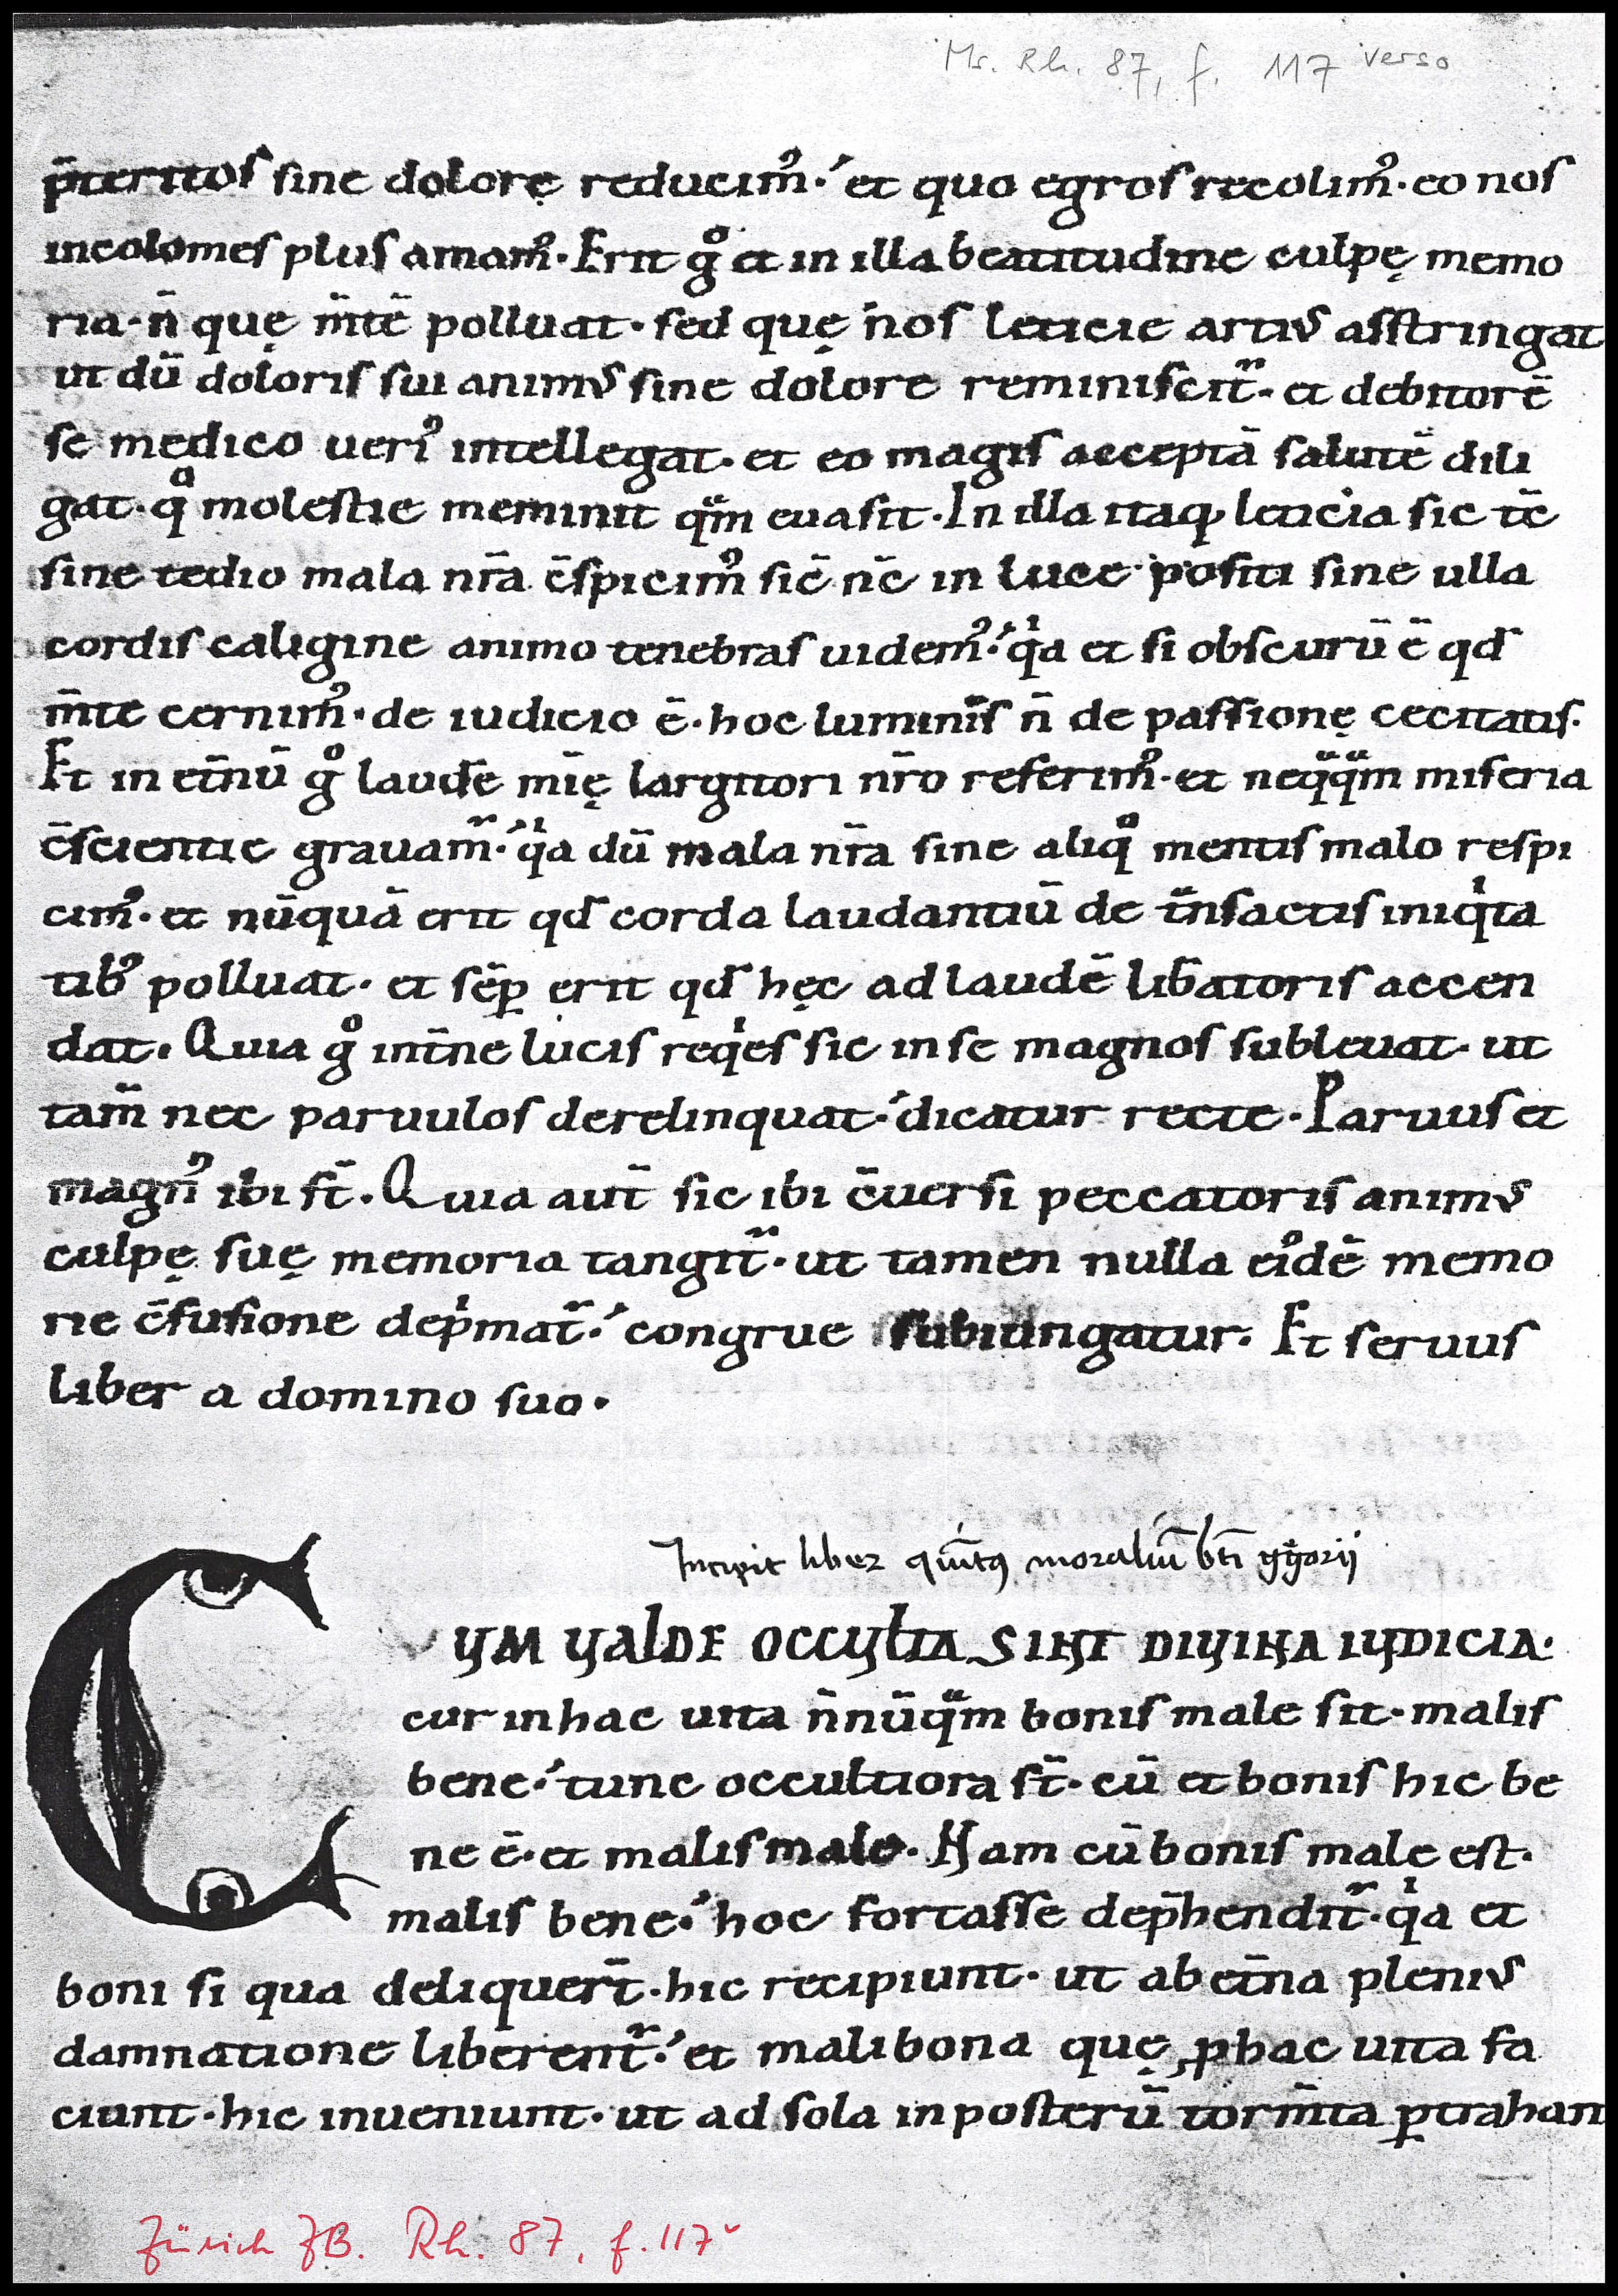 Ms. Rh. 87, f. 117 verso
p̄teritos sine dolorę reducim᷒·́ et quo egros recolim᷒· eo nos
incolomes plus amam᷒· Erit gͦ et in illa beatitudine culpę memo
ria· n̄ quę m̄tē polluat· sed quę nos leticie artius asstringat
ut dū doloris sui animus sine dolore reminiscit᷑· et debitorē
se medico ueri᷒ intellegat· et eo magis acceptā salutē dili
gat· qͦ molestie meminit qᷓm euasit· In illa itaq; leticia sic tc̄
sine tedio mala nr̄a c̄spicim᷒ sic̄ nc̄ in luce positi sine ulla
cordis caligine animo tenebras uidem᷒·́ qͥa et si obscurū ē qd̄
m̄te cernim᷒· de iudicio ē· hoc luminis n̄ de passionę cecitatis·
Et in et̄nū gͦ laudē mīę largitori nr̄o referim᷒· et neqᷓqᷓm miseria
c̄scientie grauam᷑·́ qͥa dū mala nr̄a sine aliqͦ mentis malo respi
cim᷒· et nūquā erit qd̄ corda laudantiū de tᷓnsactis iniqͥta
tib᷒ polluat· et sēꝑ erit qd̄ hęc ad laudē lib̄atoris accen
dat· Quia gͦ int̄ne lucis reqͥes sic in se magnos subleuat· ut
tam̄ nec paruulos derelinquat·́ dicatur recte· Paruus et
magn᷒ ibi st̄· Quia aut̄ sic ibi c̄uersi peccatoris animus
culpę suę memoria tangit᷑· ut tamen nulla eiͦdē memo
rie c̄fusione depͥmat᷑·́ congrue subiungatur· Et seruus
liber a domino suo·
Incipit liber qui̅tꝰ moraliū bt̄i gͤgorij
CUM UALDE OCCULTA SINT DIUINA IUDICIA·
cur in hac uita n̄nūqᷓm bonis male sit· malis
bene·́ tunc occultiora st̄· cū et bonis hic be
ne ē· et malis male· Nam cū bonis male est·
malis bene·́ hoc fortasse dep̄hendit᷑· qͥa et
boni si qua deliquer̄t· hic recipiunt· ut ab et̄na plenius
damnatione liberent᷑·́ et mali bona quę ꝓ hac uita fa
ciunt· hic inueniunt· ut ad sola in posterū torm̄ta ꝑtrahan
Zürich ZB. Rh. 87, f. 117v